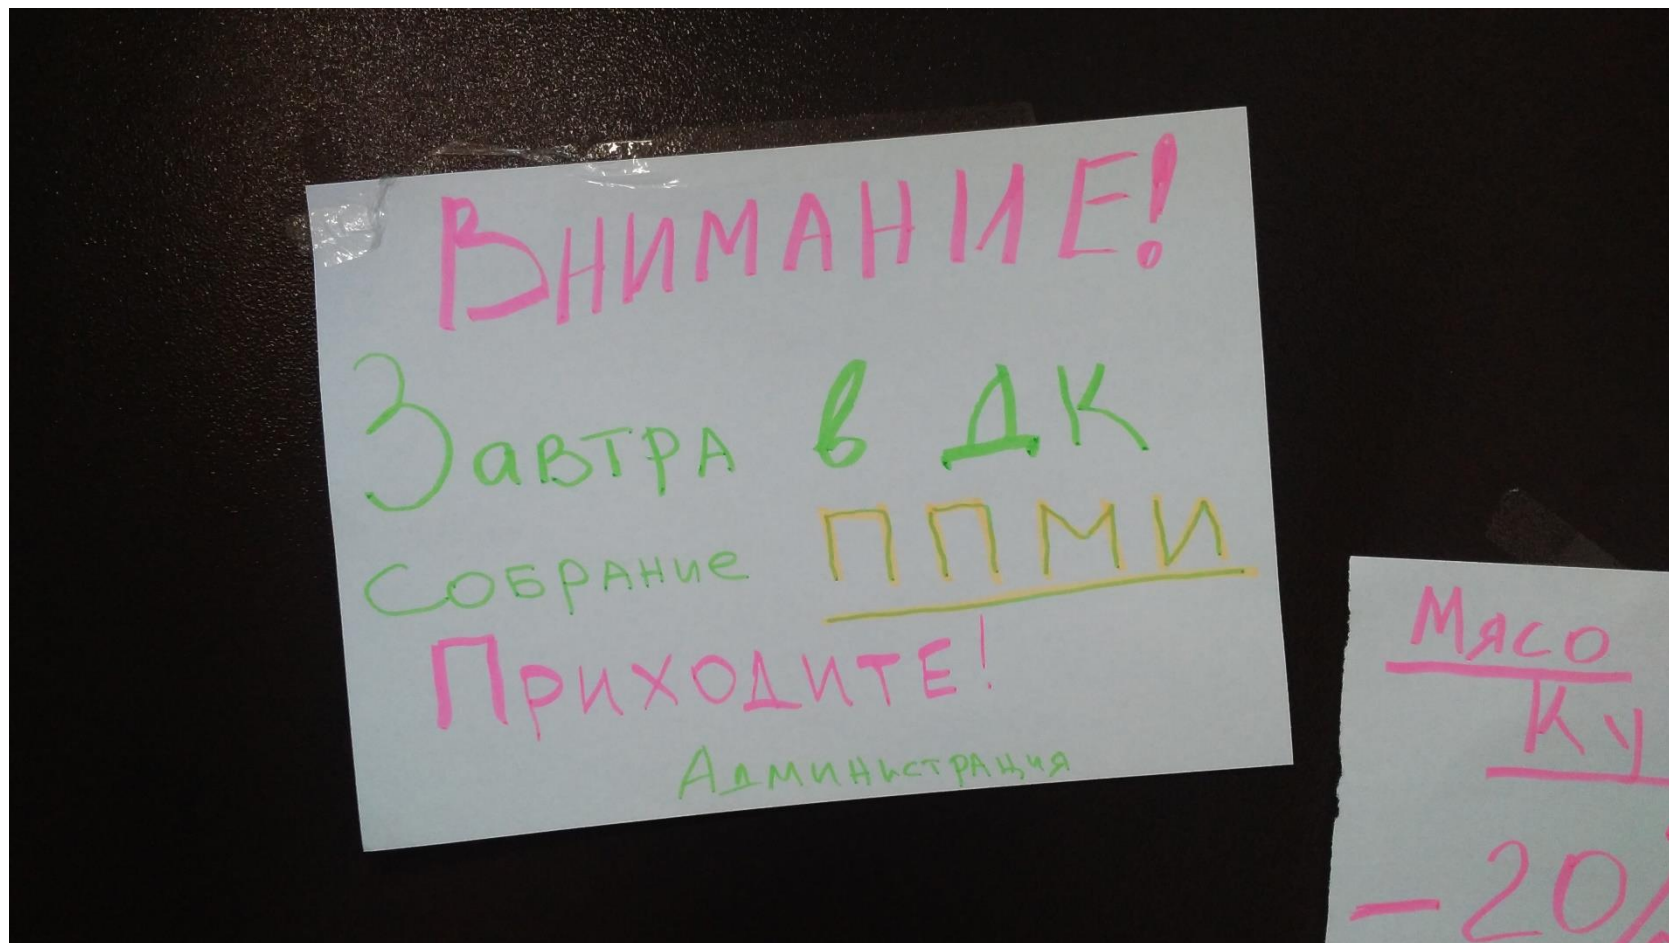 Внимание!
Завтра в ДК
собрание ППМИ
Приходите!
Администрация
Мясо
-20%